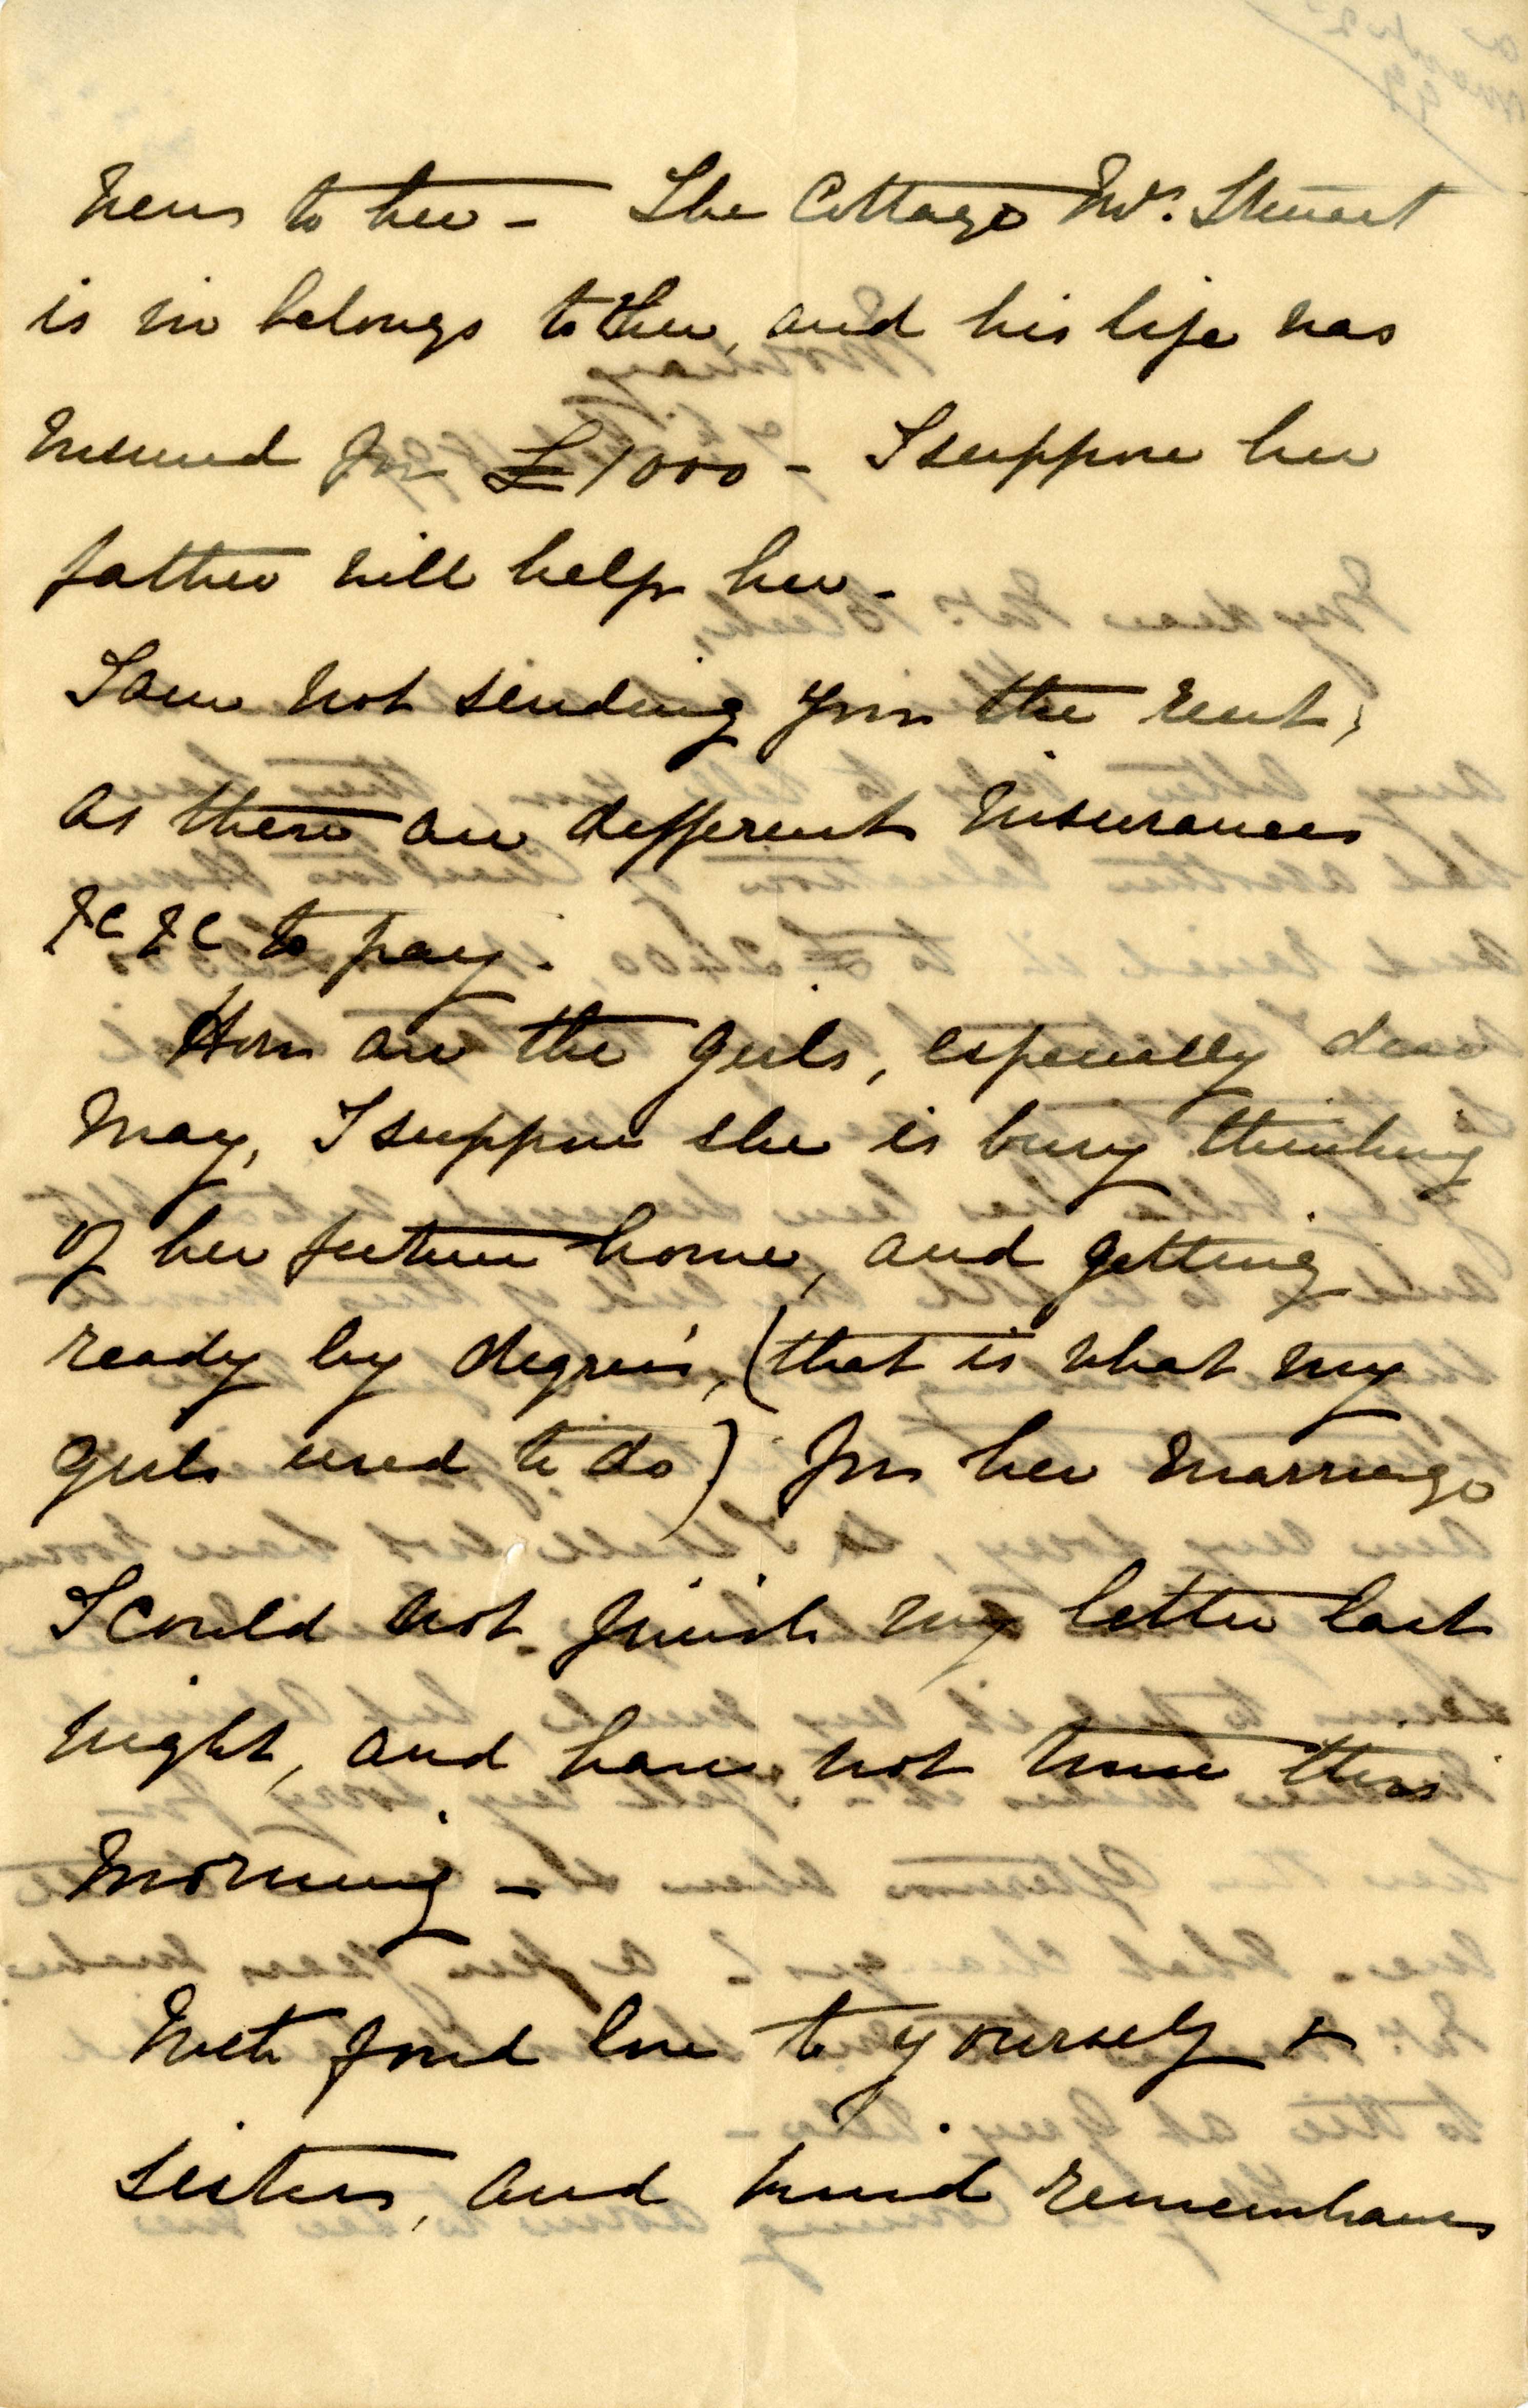 news to her - The Cottage Mrs. Stewart
is in belongs to her, and his life was
insured for £1000 - I suppose her
father will help her -
I am not sending you the rent,
as there are different Insurances
&c &c, to pay.
How are the girls, especially dear
May, I suppose she is busy thinking
of her future home, and getting
ready by degrees, (that is what my
girls used to do) for her marriage
I could not finish my letter last
night, and have not time this
Morning -
With fond love to yourself &
sisters, and kind remembrances